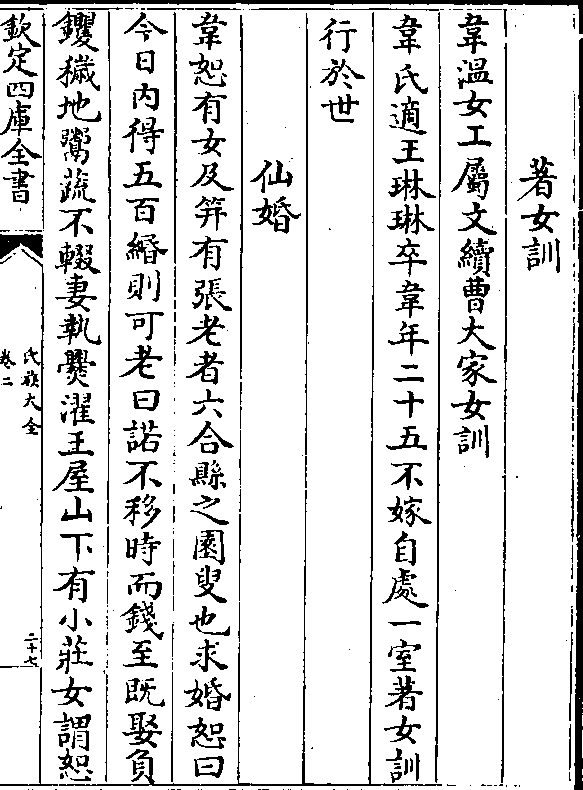 著女訓
韋溫女工屬文續曹大家女訓
韋氏適王琳琳卒韋年二十五不嫁自處一室著女訓
行於世
仙婚
韋恕有女及笄有張老者六合縣之園叟也求婚恕曰
今日内得五百緡則可老曰諾不移時而錢至既娶負
钁穢地鬻蔬不輟妻執爨濯王屋山下有小莊女謂恕
欽定四庫全書
氏族大全
卷二
二十七